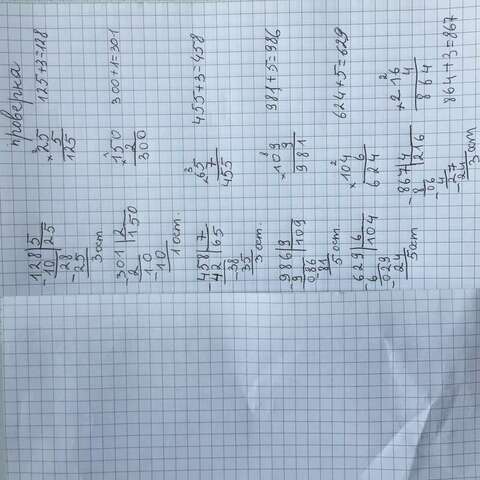 проверка
128|5 ×25 125+3=128
-10|25 5
28 125
-25
3 ост.
-301|2 ×150 300+1=301
2|150 2
10 300
-10
1 ост.
458|7 ×65 455+3=458
-42|65 7
38 455
-35
3 ост.
-986|9 ×109 981+5=986
9|109 9
086 981
-81
5 ост.
-629|6 ×104 624+5=629
6|104 6
-029 624
24
5 ост
-867|4 ×216 864+3=867
8|216 4
06 864
-4
27
-24
3 ост